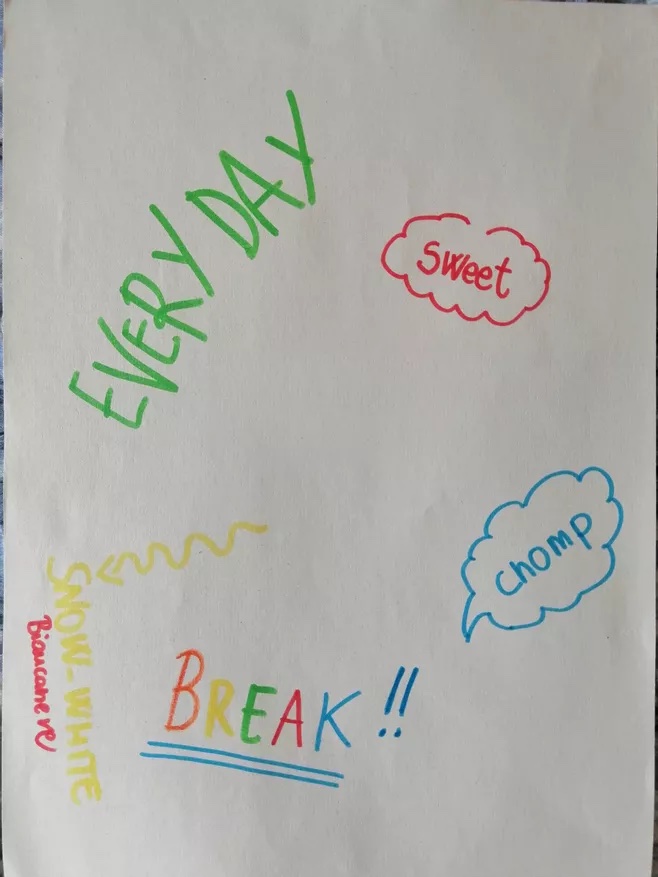 EVERY DAY
Sweet
Chomp
SNOW-WHITE
Biancaneve
BREAK!!